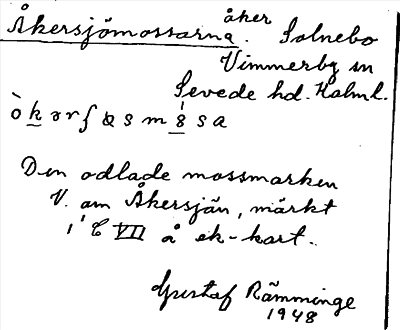 Åkersjömossarna. åker Solnebo
Vimmerby sn
Sevede hd. Kalm l.
Den odlade mossmarken
V. om Åkersjön, märkt
i C VII å ek-kart.
Gustaf Rämminge
1948